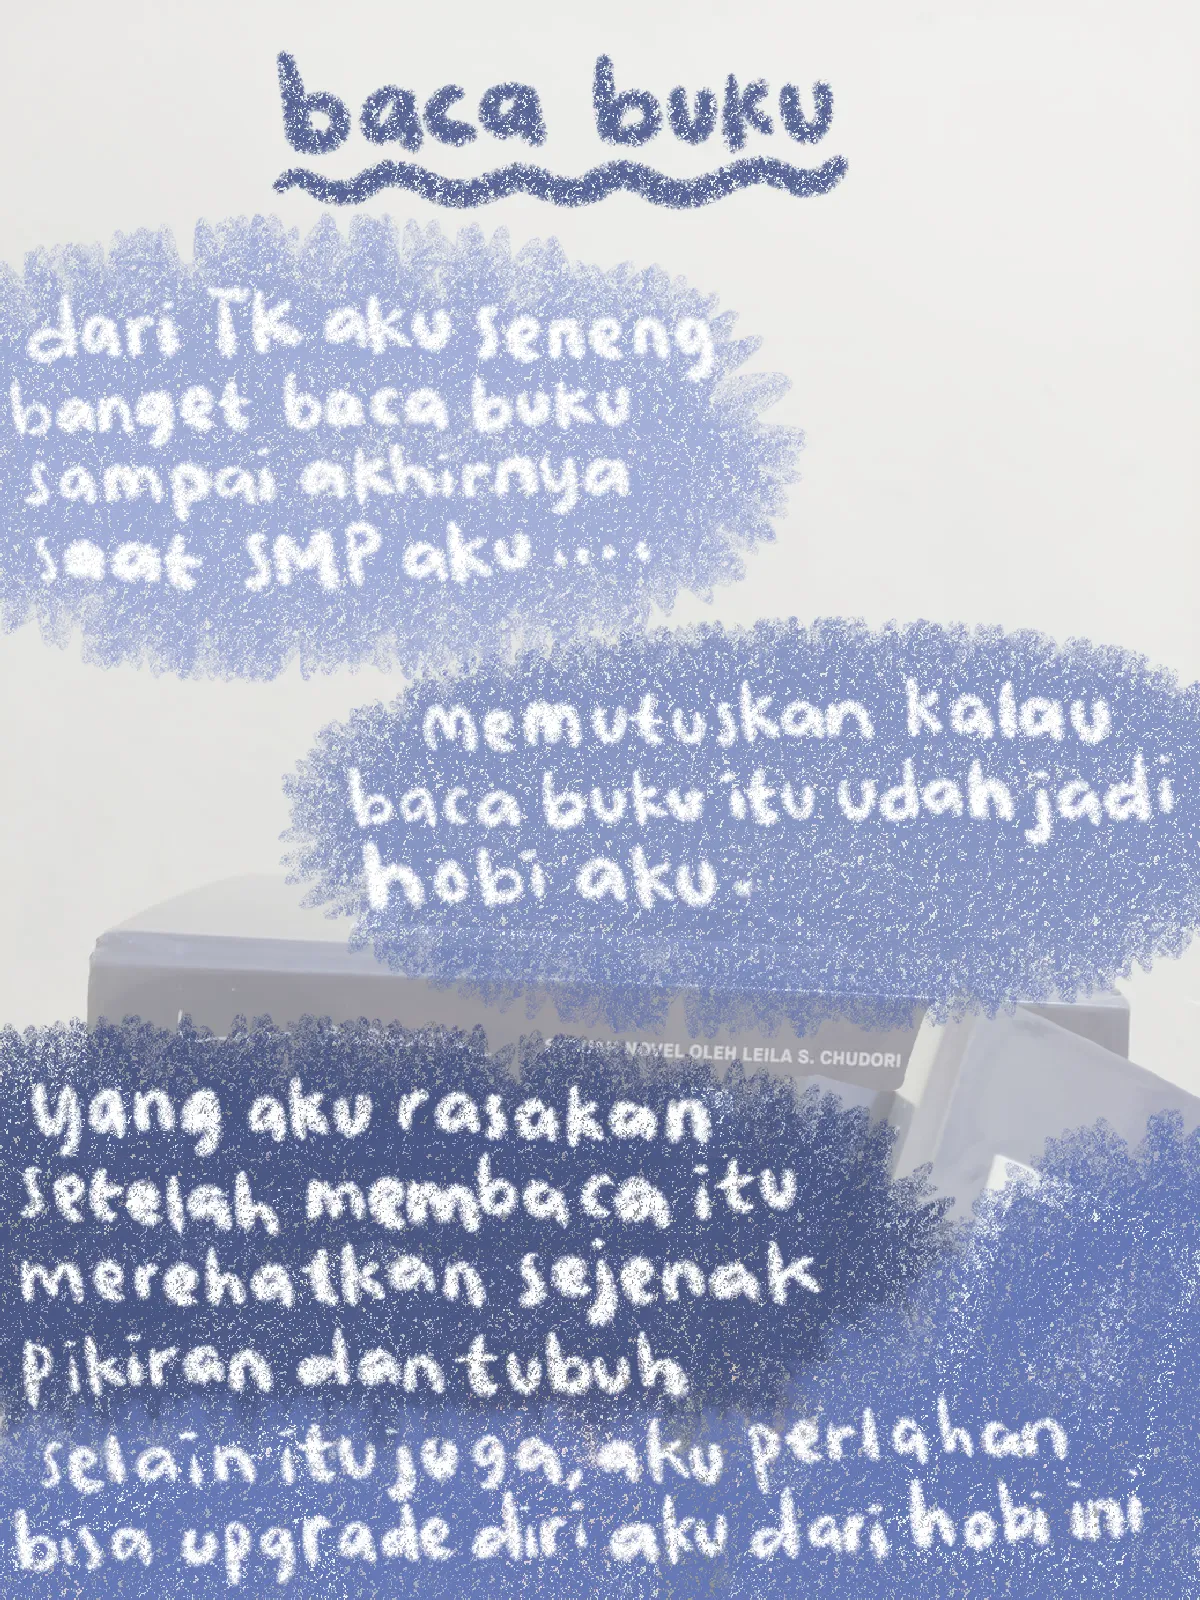 baca buku
dari TK aku seneng
banget baca buku
sampai akhirnya
saat SMP aku ....
memutuskan kalau
baca buku itu udah jadi
hobi aku.
NOVEL OLEH LEILA S. CHUDORI
yang aku rasakan
setelah membaca itu
merehatkan sejenak
pikiran dan tubuh
selain itu juga, aku perlahan
bisa upgrade diri aku dari hobi ini